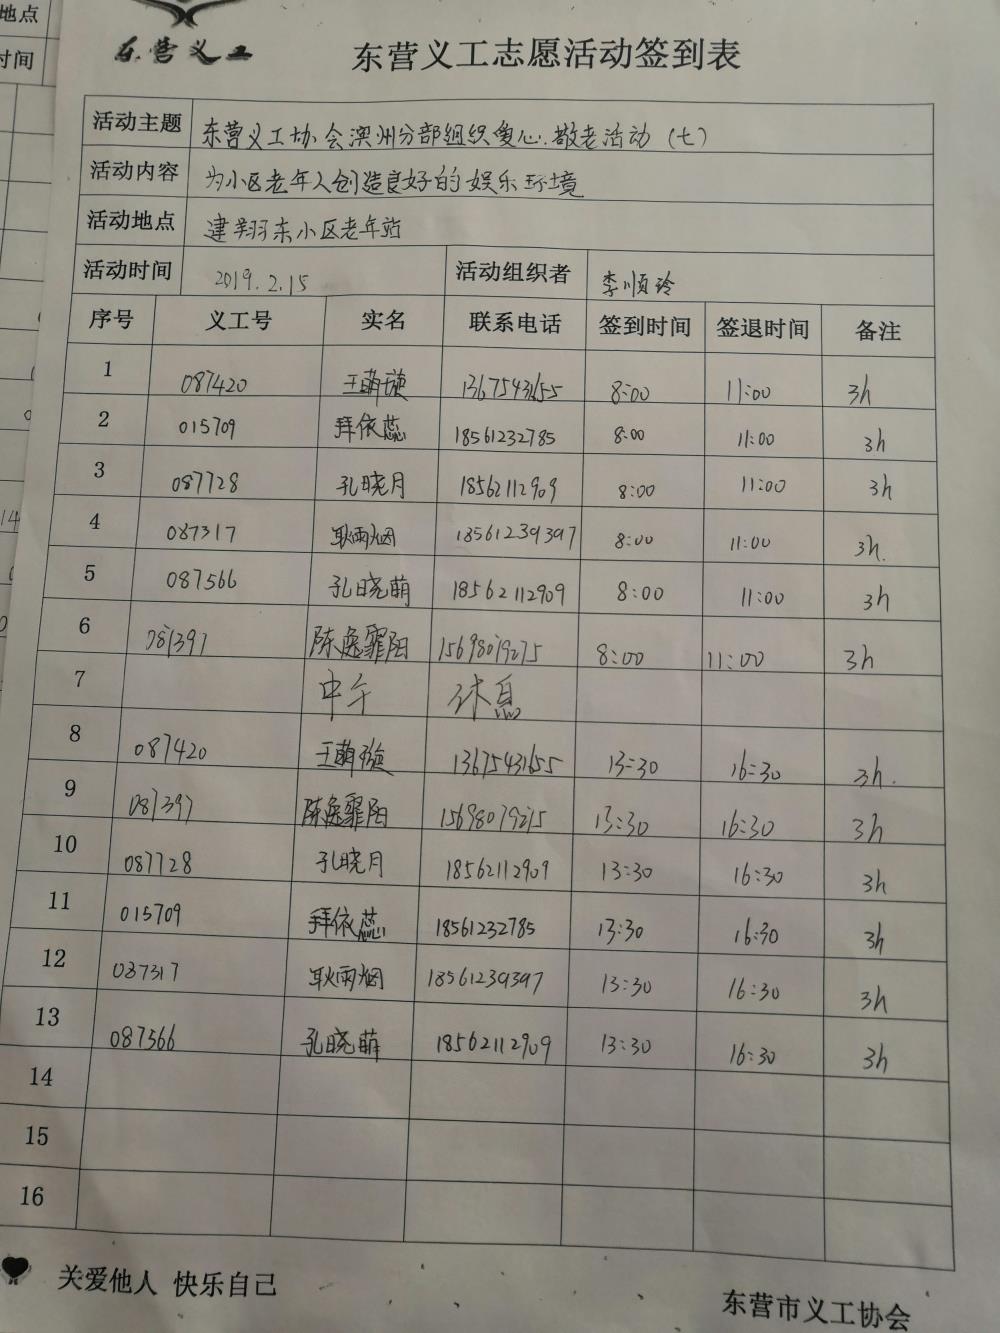 地点
时间
14
东营义工
东营义工志愿活动签到表
活动主题 东营义工协会澳州分部组织爱心.敬老活动(七)
活动内容 为小区老年人创造良好的娱乐环境
活动地点 建翔东小区老年站
活动时间 2019.2.15 活动组织者 李顺玲
序号 义工号 实名 联系电话 签到时间 签退时间 备注
1 087420 王萌璇 13675431655 8:00 11:00 3h
2 015709 拜依蕊 18561232785 8:00 11:00 3h
3 087728 孔晓月 18562112909 8:00 11:00 3h
4 087317 耿雨烟 18561239397 8:00 11:00 3h.
5 087566 孔晓萌 18562112909 8:00 11:00 3h
6 081397 陈逸霏阳 15698079275 8:00 11:00 3h
7 中午 休息
8 087420 王萌璇 13675431655 13:30 16:30 3h.
9 081397 陈逸霏阳 15698079275 13:30 16:30 3h
10 087728 孔晓月 18562112909 13:30 16:30 3h
11 015709 拜依蕊 18561232785 13:30 16:30 3h
12 087317 耿雨烟 18561239397 13:30 16:30 3h
13 087566 孔晓萌 18562112909 13:30 16:30 3h
14
15
16
关爱他人 快乐自己
东营市义工协会